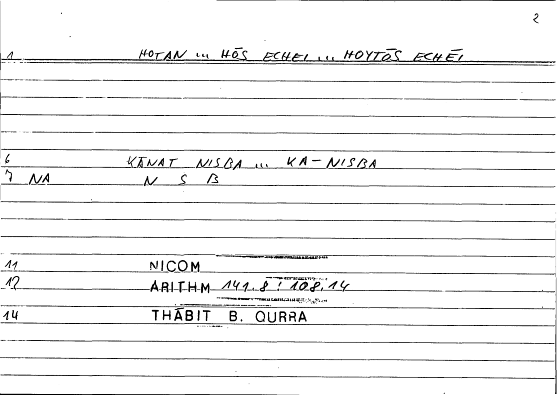 2
1 HOTAN ... HŌS ECHEI ... HOYTŌS ECHEI
6 KĀNAT NISBA ... KA-NISBA
7 NA N S B
11 NICOM
12 ARITHM 141.8 : 108.14
14 THĀBIT B. QURRA